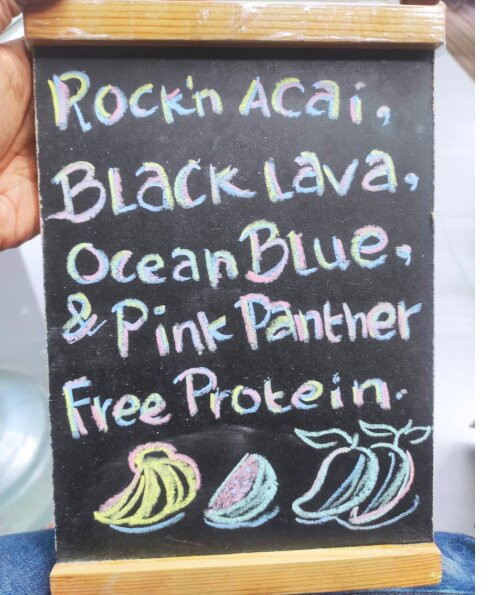 Rock'n Acai,
Black Lava,
Ocean Blue,
& Pink Panther
Free Protein.